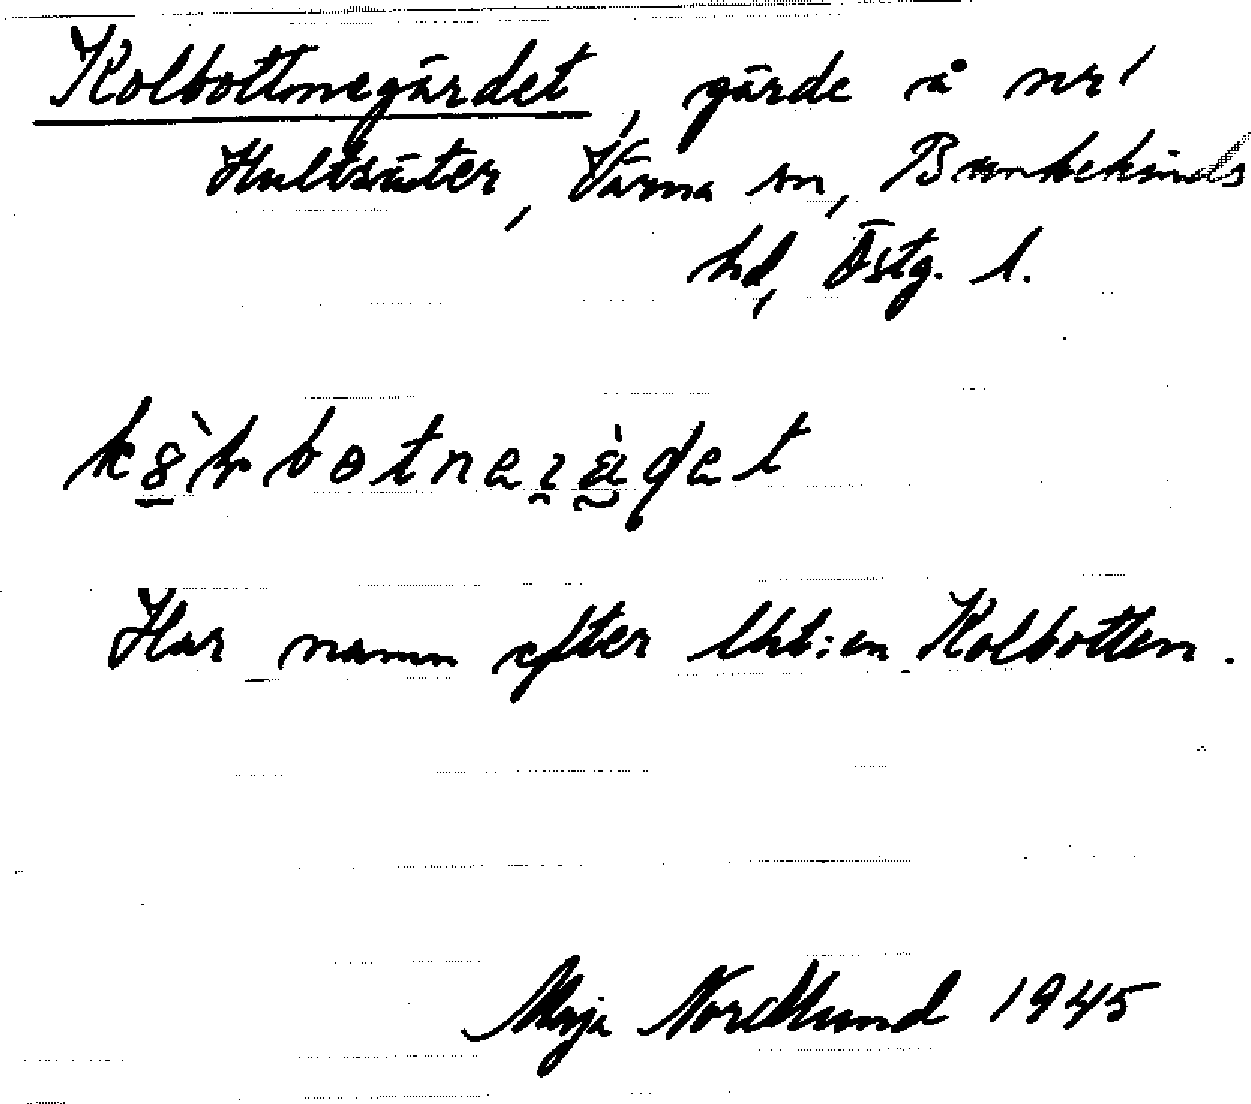 Kolbottnegärdet, gärde å nr 1
Hultsäter, Värna sn, Bankekinds
hd, Östg. l.
Har namn efter lht:en Kolbotten.
Maja Nordlund 1945